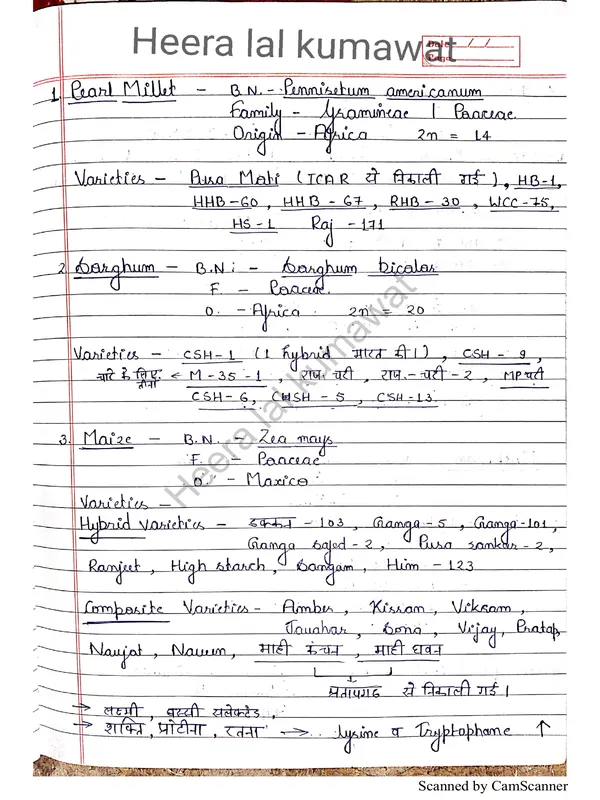 Heera lal kumawat
Date / /
Page
1. Pearl Millet - B.N. - Pennisetum americanum
Family - Gramineae | Poaceae
Origin - Africa 2n = 14
Varieties - Pusa Moti (ICAR से निकाली गई), HB-1,
HHB-60, HHB-67, RHB-30, WCC-75,
HS-1 Raj-171
2. Sorghum - B.N: - Sorghum bicolor
F. - Poaceae
O. - Africa 2n = 20
Varieties - CSH-1 (1 hybrid भारत की।), CSH-9,
चारे के लिए < M-35-1, राज. चरी, राज.-चरी-2, MP चरी
CSH-6, CWSH-5, CSH-13
3. Maize - B.N. - Zea mays
F. - Poaceae
O. - Maxico
Varieties -
Hybrid Varieties - डक्कन-103, Ganga-5, Ganga-101,
Ganga safed-2, Pusa sankar-2,
Ranjeet, High starch, Sangam, Him-123
Composite Varieties - Amber, Kissan, Vikram,
Jauahar, Sona, Vijay, Pratap,
Navjot, Naveen, माही कंचन, माही धवन
प्रतापगढ से निकाली गई।
→ लक्ष्मी, बस्सी सलेक्टेड,
→ शक्ति, प्रोटीना, रतना → lysine व Tryptophane ↑
Heera lal kumawat
Scanned by CamScanner